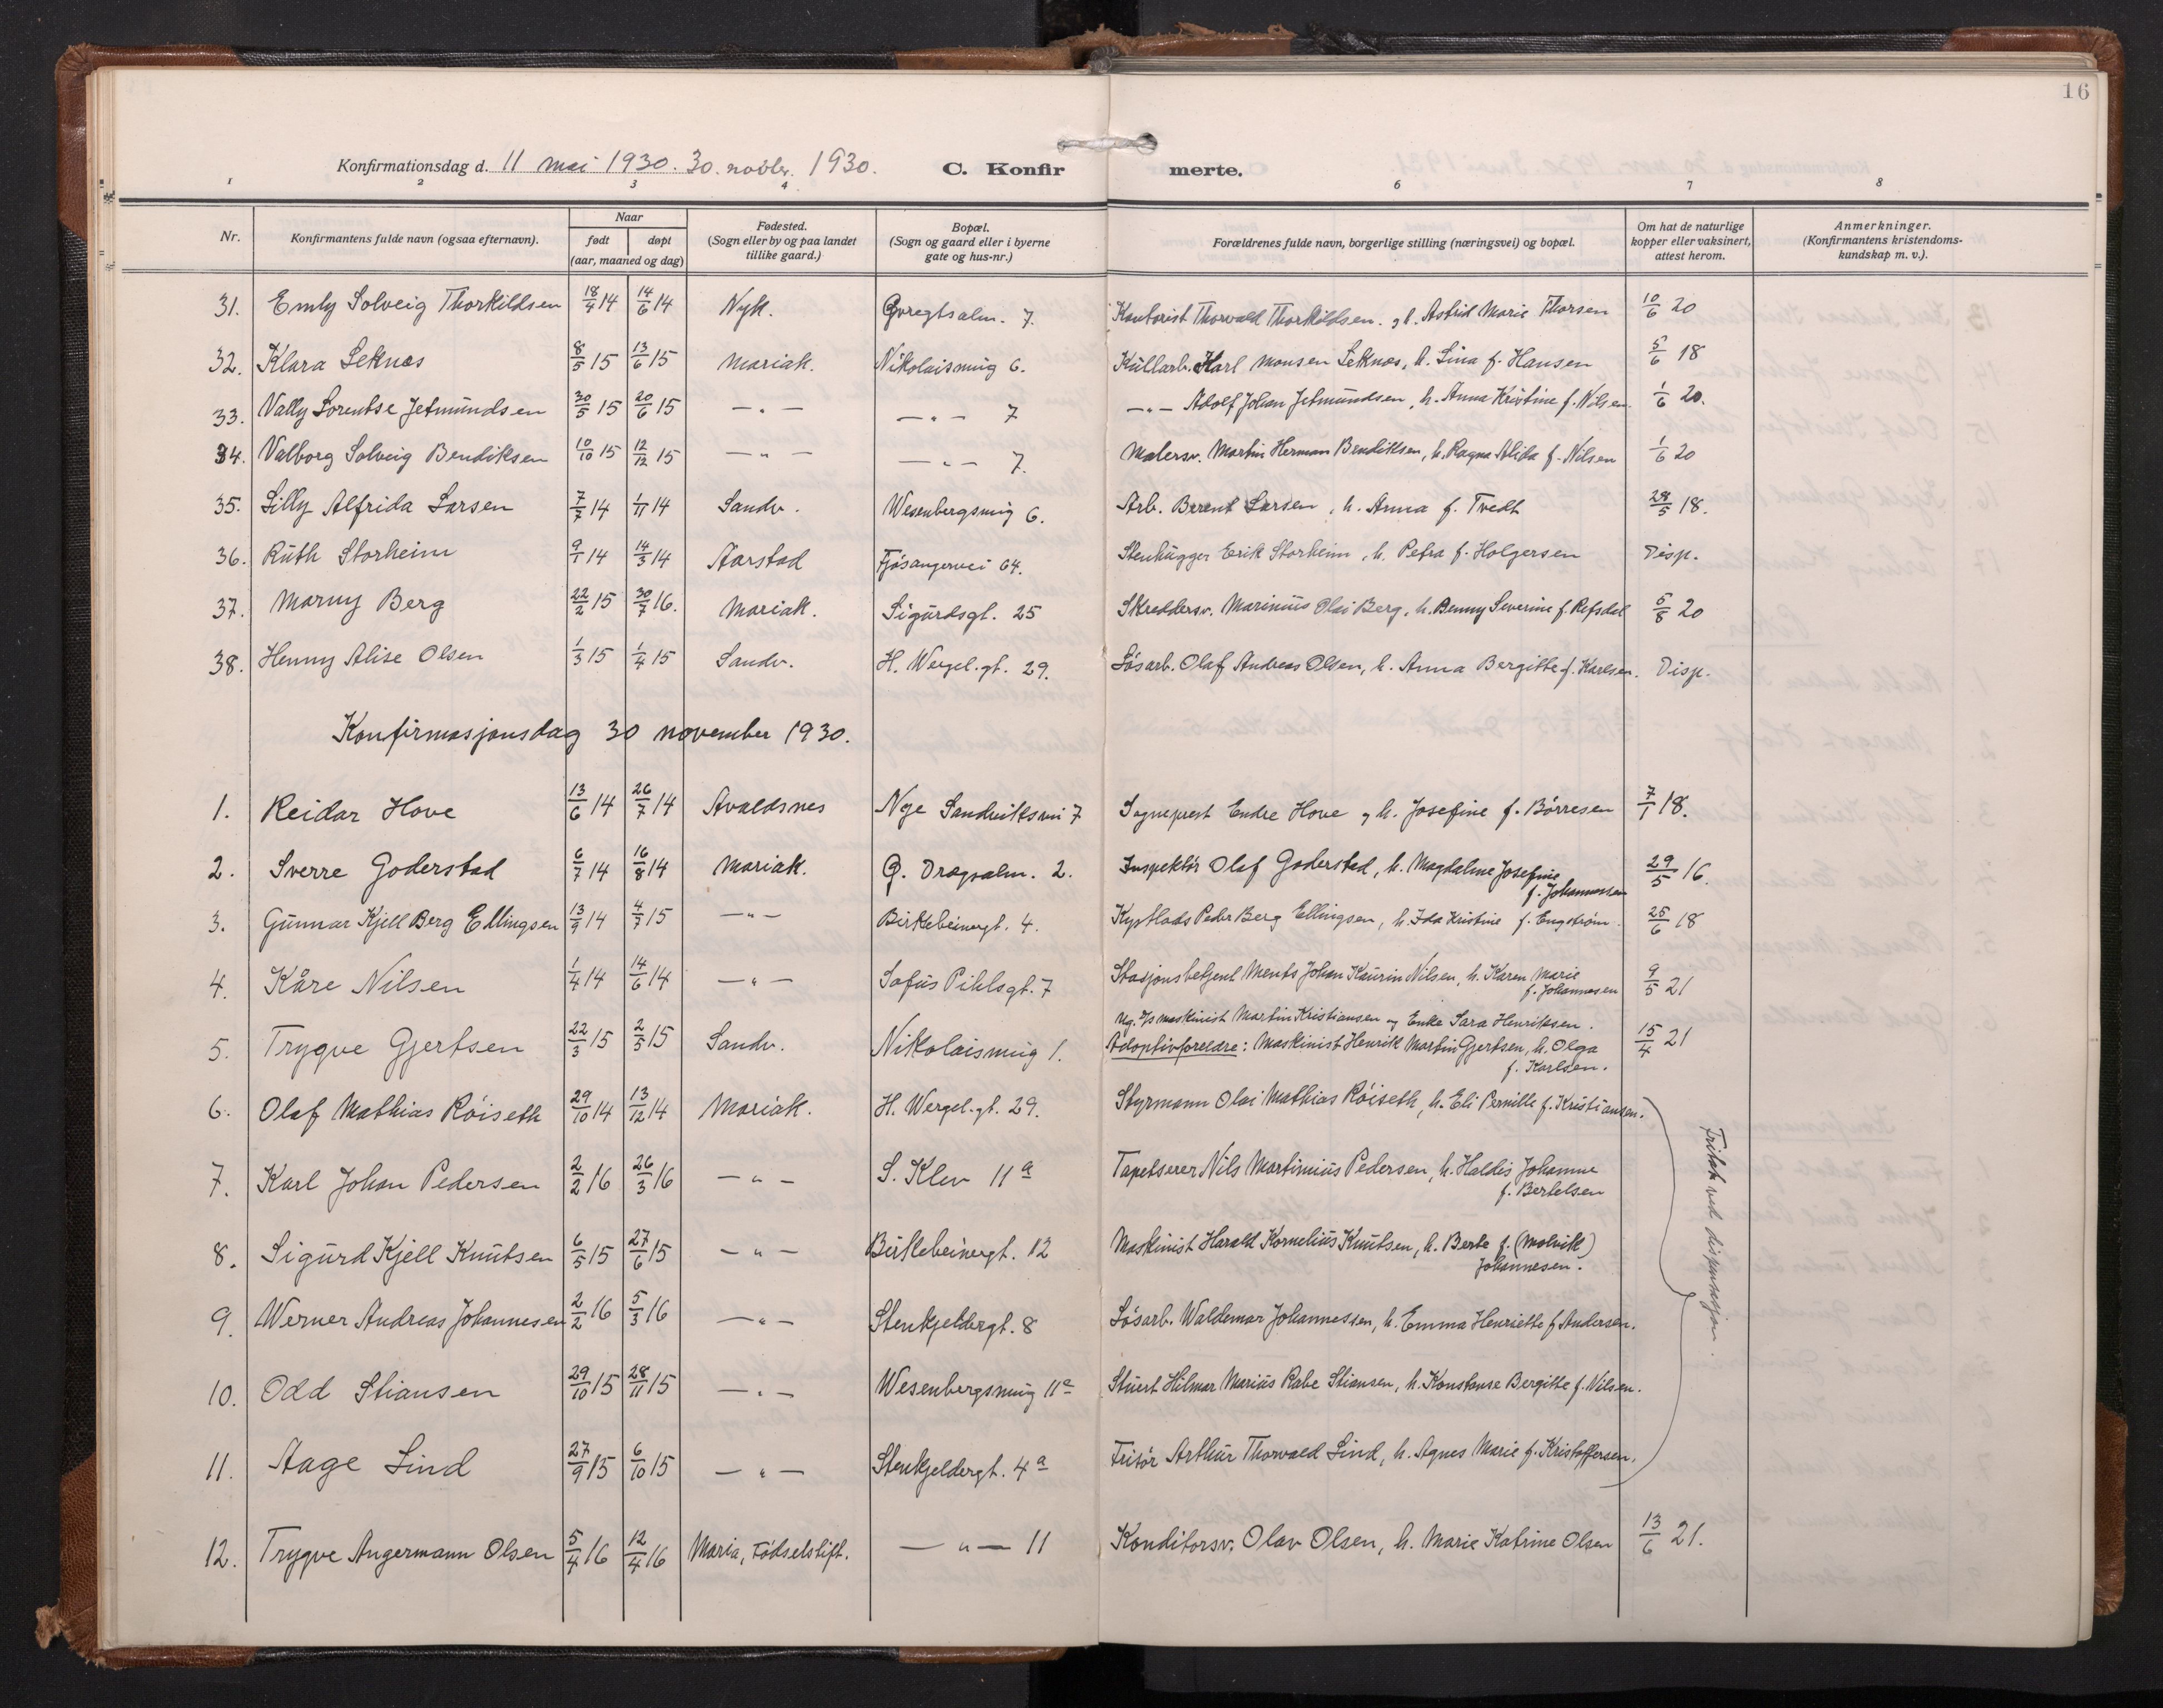 16
Konfirmationsdag d. 11 mai 1930. 30. novbr. 1930. C. Konfirmerte.
1 2 3 4 6 7 8
Nr. Konfirmantens fulde navn (ogsaa efternavn). Naar født døpt (aar, maaned og dag) Fødested. (Sogn eller by og paa landet tillike gaard.) Bopæl. (Sogn og gaard eller i byerne gate og hus-nr.) Forældrenes fulde navn, borgerlige stilling (næringsvei) og bopæl. Om hat de naturlige kopper eller vaksinert, attest herom. Anmerkninger. (Konfirmantens kristendoms-kundskap m. v.).
31. Emly Solveig Thorkildsen 18/4 14 14/6 14 Nyk. 7. Kontorist Thorvald Thorkildsen. og h. Astrid Marie Thorsen 10/6 20
32. Klara Seknes 8/5 15 13/6 15 Mariak. Nikolaismug 6. Kullarb. Karl Monsen Seknes, h. Lina f. Hansen 5/6 18
33. Vally Lorentse Jetmundsen 30/5 15 20/6 15 —"— —"— 7 —"— Adolf Johan Jetmundsen, h. Anna Kristine f. Nilsen. 1/6 20.
34. Valborg Solveig Bendiksen 10/10 15 12/12 15 —"— —"— 7. Malersv. Martin Herman Bendiksen, h. Ragna Alida f. Nilsen 1/6 20
35. Lilly Alfrida Larsen 7/7 14 1/11 14 Sandv. Wesenbergsmug 6. Arb. Berent Larsen, h. Anna f. Tvedt 28/5 18.
36. Ruth Storheim 9/1 14 14/3 14 Aarstad Fjøsangervei 64. Stenhugger Erik Storheim, h. Petra f. Holgersen Disp.
37. Marny Berg 22/2 15 30/7 16. Mariak. Sigurdsgt. 25 Skreddersv. Marinius Olai Berg, h. Benny Severine f. Refsdal 5/8 20
38. Henny Alise Olsen 1/3 15 1/4 15 Sandv. H. Wergel.gt. 29. Løsarb. Olaf Andreas Olsen, h. Anna Bergitte f. Karlsen. Disp.
Konfirmasjonsdag 30 november 1930.
1. Reidar Hove 13/6 14 26/7 14 Avaldsnes Nye Sandviksvei 7 Sogneprest Endre Hove og h. Josefine f. Børresen 7/1 18.
2. Sverre Goderstad 6/7 14 16/8 14 Mariak. 2. Inspektør Olaf Goderstad, h. Magdalene Josefine
f. Johannessen 29/5 16.
3. Gunnar Kjell Berg Ellingsen 13/9 14 4/7 15 —"— Birkebeinergt. 4. Peder Berg Ellingsen, h. Ida Kristine f. Engstrøm. 25/6 18
4. Kåre Nilsen 1/4 14 14/6 14 —"— Sofus Pihlsgt. 7 Stasjonsbetjent Ments Johan Kaurin Nilsen, h. Karen Marie
f. Johannesen 9/5 21
Ug. f/s maskinist Martin Kristiansen og Enke Sara Henriksen.
5. Trygve Gjertsen 22/3 15 2/5 15 Sandv. Nikolaismug 1. Adoptivforeldre: Maskinist Henrik Martin Gjertsen, h. Olga
f. Karlsen. 15/4 21
6. Olaf Mathias Røiseth 29/10 14 13/12 14 Mariak. H. Wergel.gt. 29. Styrmann Olai Mathias Røiseth, h. Eli Pernille f. Kristiansen.
7. Karl Johan Pedersen 2/2 16 26/3 16 —"— S. Klev 11a Tapetserer Nils Martinius Pedersen, h. Haldis Johanne
f. Bertelsen
8. Sigurd Kjell Knutsen 6/5 15 27/6 15 —"— Birkebeinergt. 12 Maskinist Harald Kornelius Knutsen, h. Berte f. (Molvik)
Johannesen.
9. Werner Andreas Johannesen 2/2 16 5/3 16 —"— Stenkjeldergt. 8 Løsarb. Waldemar Johannessen, h. Emma Henriette f. Andersen.
10. Odd Stiansen 29/10 15 28/11 15 —"— Wesenbergsmug 11a Stuert Hilmar Marius Rabe Stiansen, h. Konstanse Bergitte f. Nilsen.
11. Aage Lind 27/9 15 6/10 15 —"— Stenkjeldergt. 4a Frisør Arthur Thorvald Lind, h. Agnes Marie f. Kristoffersen.
Fritatt ved dispensasjon.
12. Trygve Angermann Olsen 5/4 16 12/4 16 Maria, Fødselstift. —"— 11 Konditorsv. Olav Olsen, h. Marie Katrine Olsen 13/6 21.